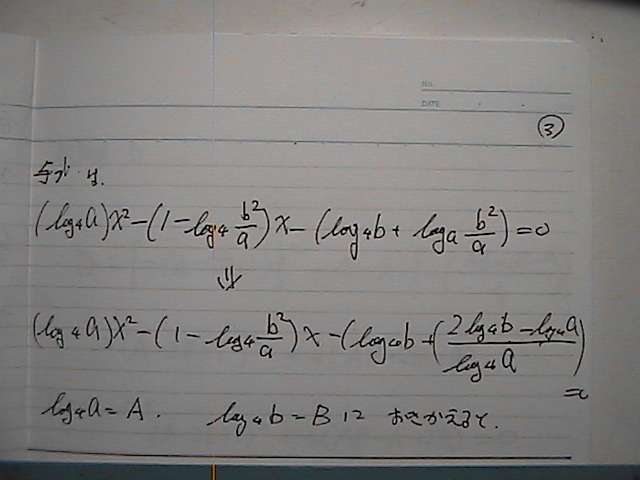 NO.
DATE
③
与式は、
(log₄a)x² − (1 − log₄ b²/a)x − (log₄b + logₐ b²/a) = 0
⇓
(log₄a)x² − (1 − log₄ b²/a)x − (log₄b + (2log₄b − log₄a)/log₄a) = 0
log₄a = A. log₄b = B に おきかえると.